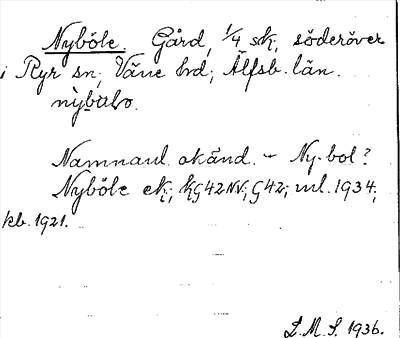 Nyböle. Gård, 1/4 sk, söderöver
i Ryr sn; Väne hrd; Älfsb. län.
Namnaul. okänd. – Ny-bol?
Nyböle ek; kG42NV; G42; ml. 1934;
kb. 1921.
L.M.S. 1936.